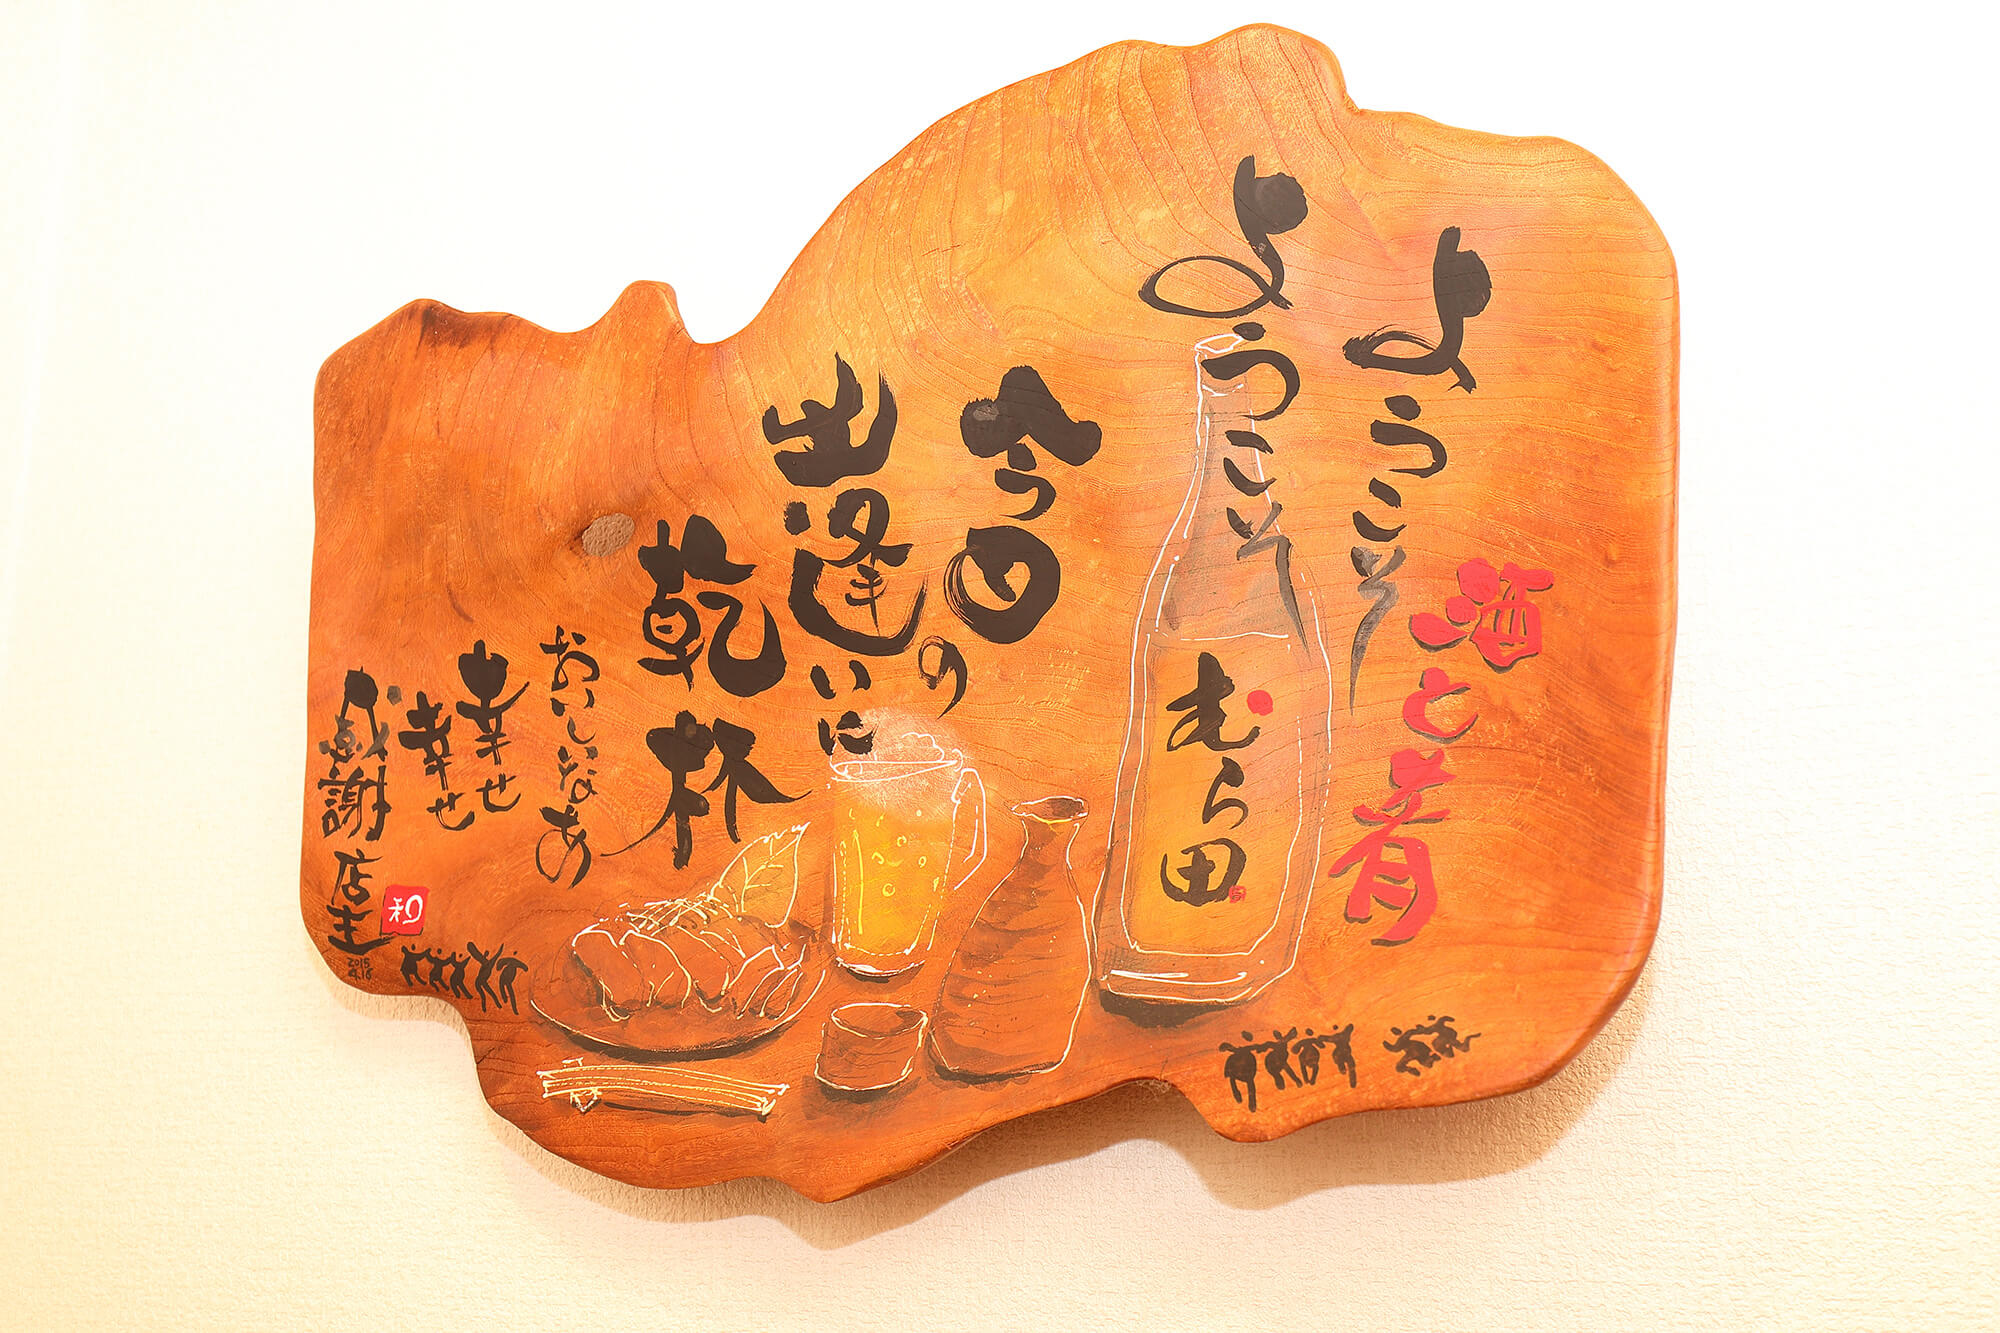 ようこそ
ようこそ
酒と肴
むら田
今日の
出逢いに
乾杯
おいしいなあ
幸せ
幸せ
感謝
店主
和
2015
4.16